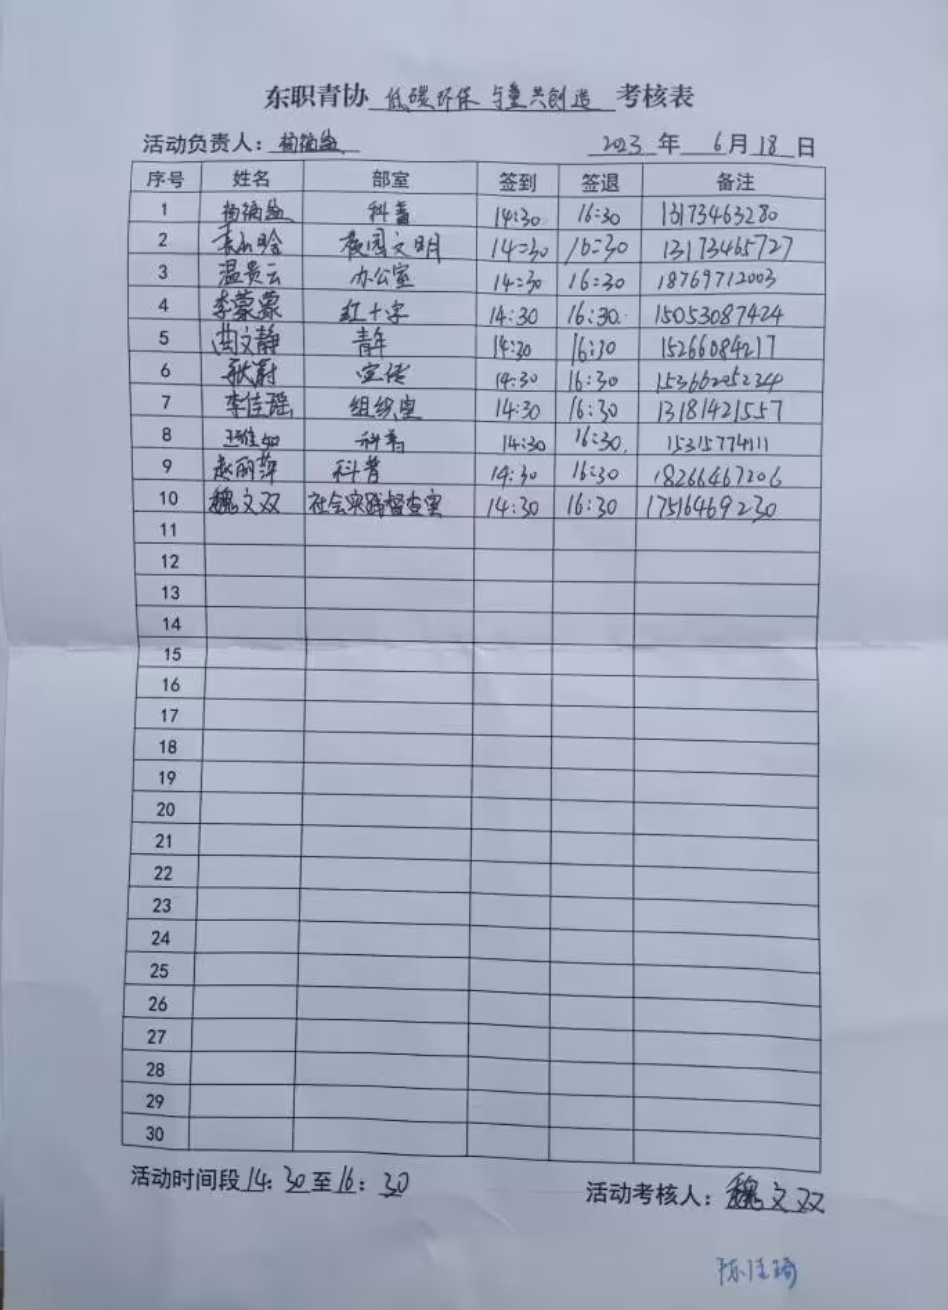 东职青协 低碳环保 与童共创造 考核表
活动负责人：
2023 年 6 月 18 日
序号 姓名 部室 签到 签退 备注
1 科普 14:30 16:30 13173463280
2 校园文明 14:30 16:30 13173465727
3 温贵云 办公室 14:30 16:30 18769712003
4 李蒙蒙 红十字 14:30 16:30 15053087424
5 曲文静 青年 14:30 16:30 15266084217
6 宣传 14:30 16:30 15366205234
7 李佳瑶 组织室 14:30 16:30 13181421557
8 科普 14:30 16:30 15315774111
9 赵丽萍 科普 14:30 16:30 18266467206
10 魏文双 社会实践督查室 14:30 16:30 17516469230
11
12
13
14
15
16
17
18
19
20
21
22
23
24
25
26
27
28
29
30
活动时间段 14：30 至 16：30
活动考核人：魏文双
陈佳琦